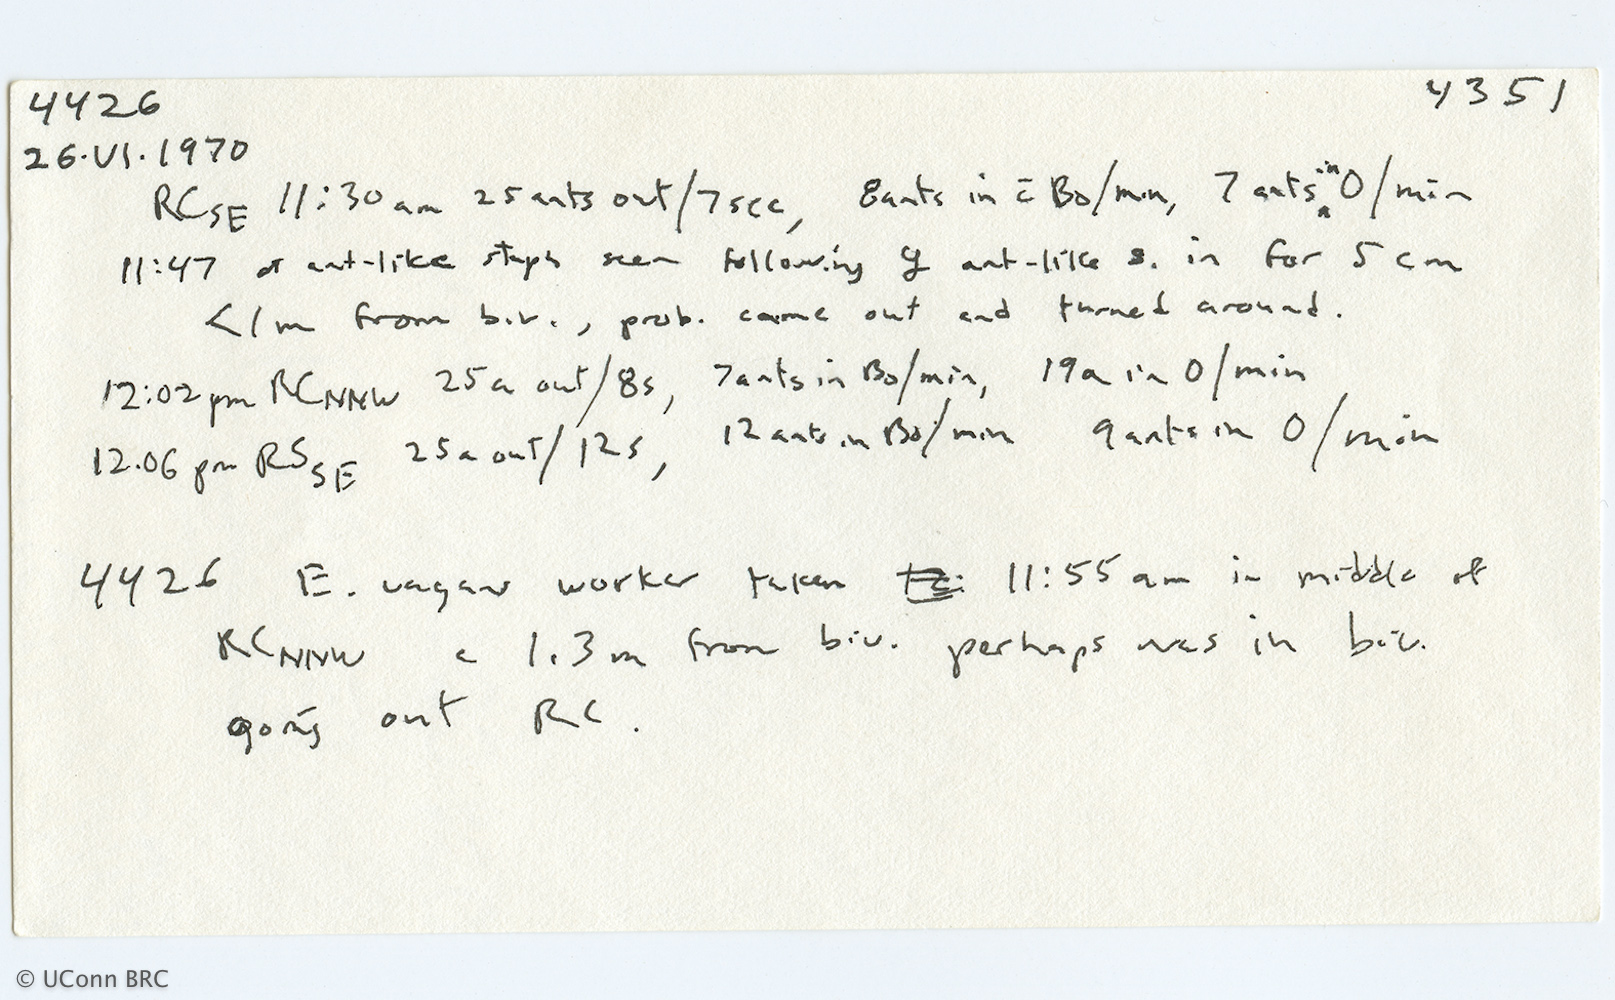 4426 4351
26.VI.1970
RCSE 11:30 am 25 ants out/7sec, 8ants in c̄ Bo/min, 7 ants in O/min
11:47 ant-like staph seen following ant-like s. in for 5 cm
<1m from biv., prob. came out and turned around.
12:02 pm RCNNW 25a out/8s, 7ants in Bo/min, 19a in O/min
12.06 pm RSSE 25a out/12s, 12 ants in Bo/min 9ants in O/min
4426 E. vagans worker taken 11:55 am in middle of
RCNNW c 1.3m from biv. perhaps was in biv.
going out RC.
© UConn BRC